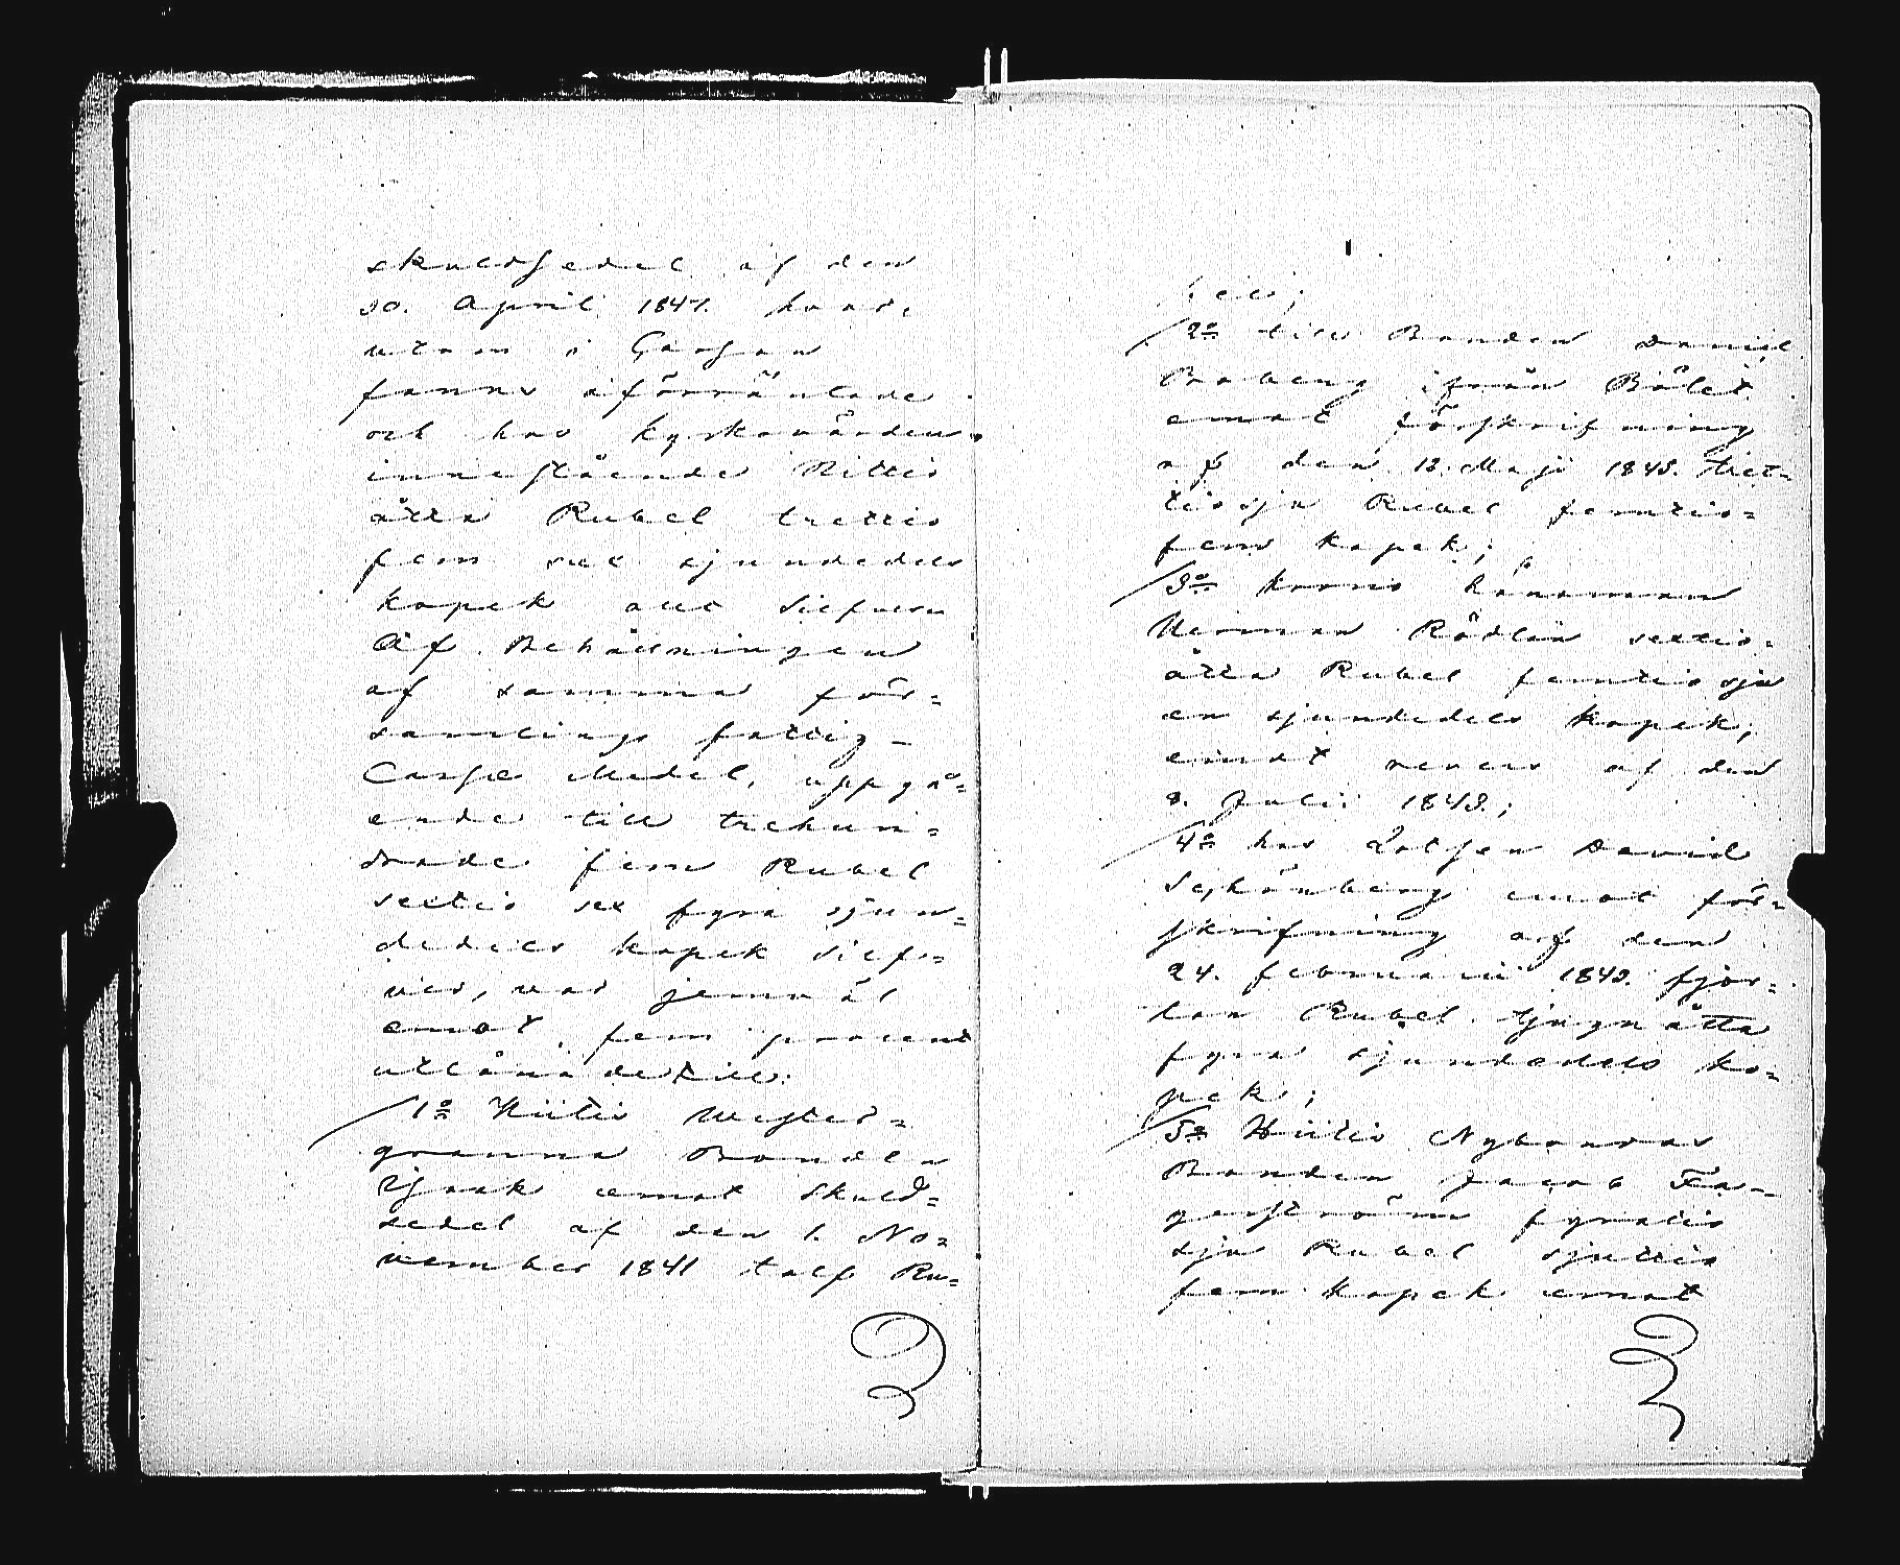 skuldsedel af den
30. April 1847. hvar,
utom i Cassan
fanns oförräntade
och hos kyrkovärden
innestående Nittio
åtta Rubel trettio
fem sex sjundedels
kopek allt Silfver.
Af Behållningen
af samma för=
samlings fattig-
Casse Medel, uppgå=
ende till trehun=
drade fem Rubel
sextio sex fyra sjun=
dedels kopek Silf=
ver, var jemväl
emot fem procent
utlånade till:
1:o Hiitis Wester=
granna Bonden
Isaak emot Skuld=
sedel af den 1. No=
vember 1841 tolf Ru=
bel;
2:o till Bonden Daniel
Broberg ifrån Bölet
emot förskrifning
af den 12. Maji 1843. tret=
tiosju Rubel femtio=
fem kopek;
3:o krono Länsman
Herman Rådlin sextio=
åtta Rubel femtiosju
en sjundedels kopek,
emot revers af den
8. Julii 1843.;
4:o hos Lotsen David
Sjöhönberg emot för=
skrifning af den
24. februarii 1843. fjor=
ton Rubel tjuguåtta
fyra sjundedels ko=
pek;
5:o Hiitis Nybondas
Bonden Jacob Fa=
gerström fyratio
sju Rubel sjuttio
fem kopek emot